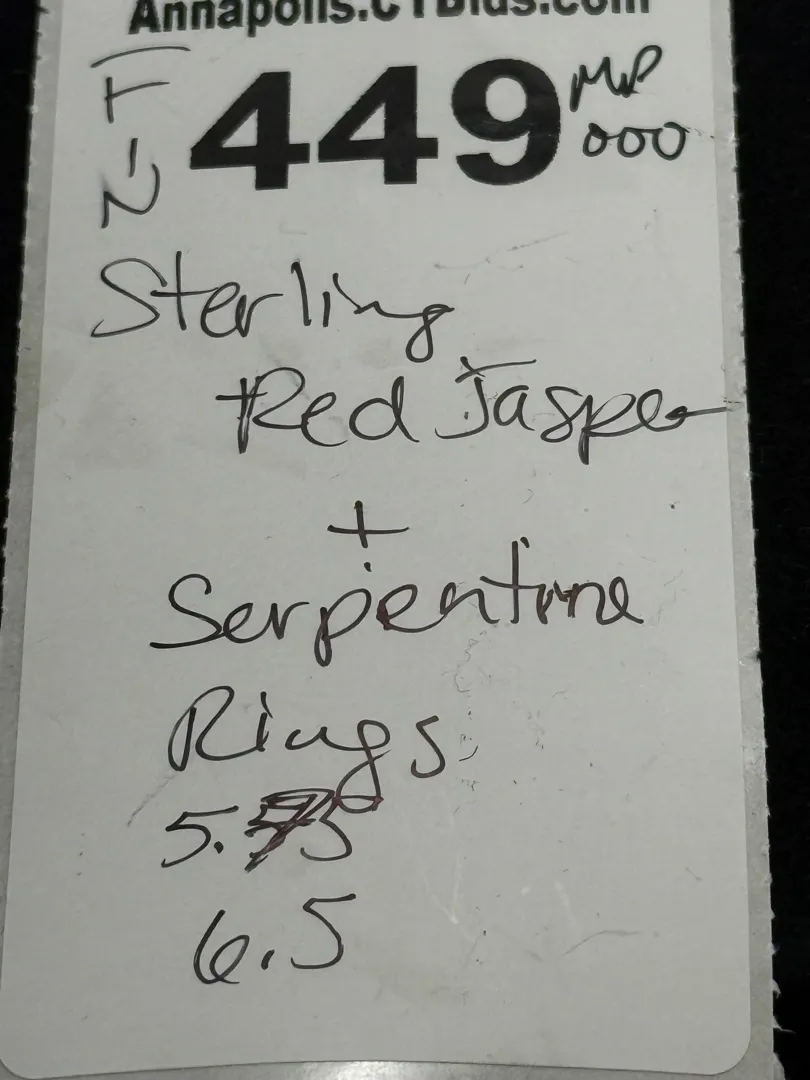 Annapolis.CTBids.com
449
MP
000
Sterling
Red Jasper
+
Serpentine
Rings
5.75
6.5